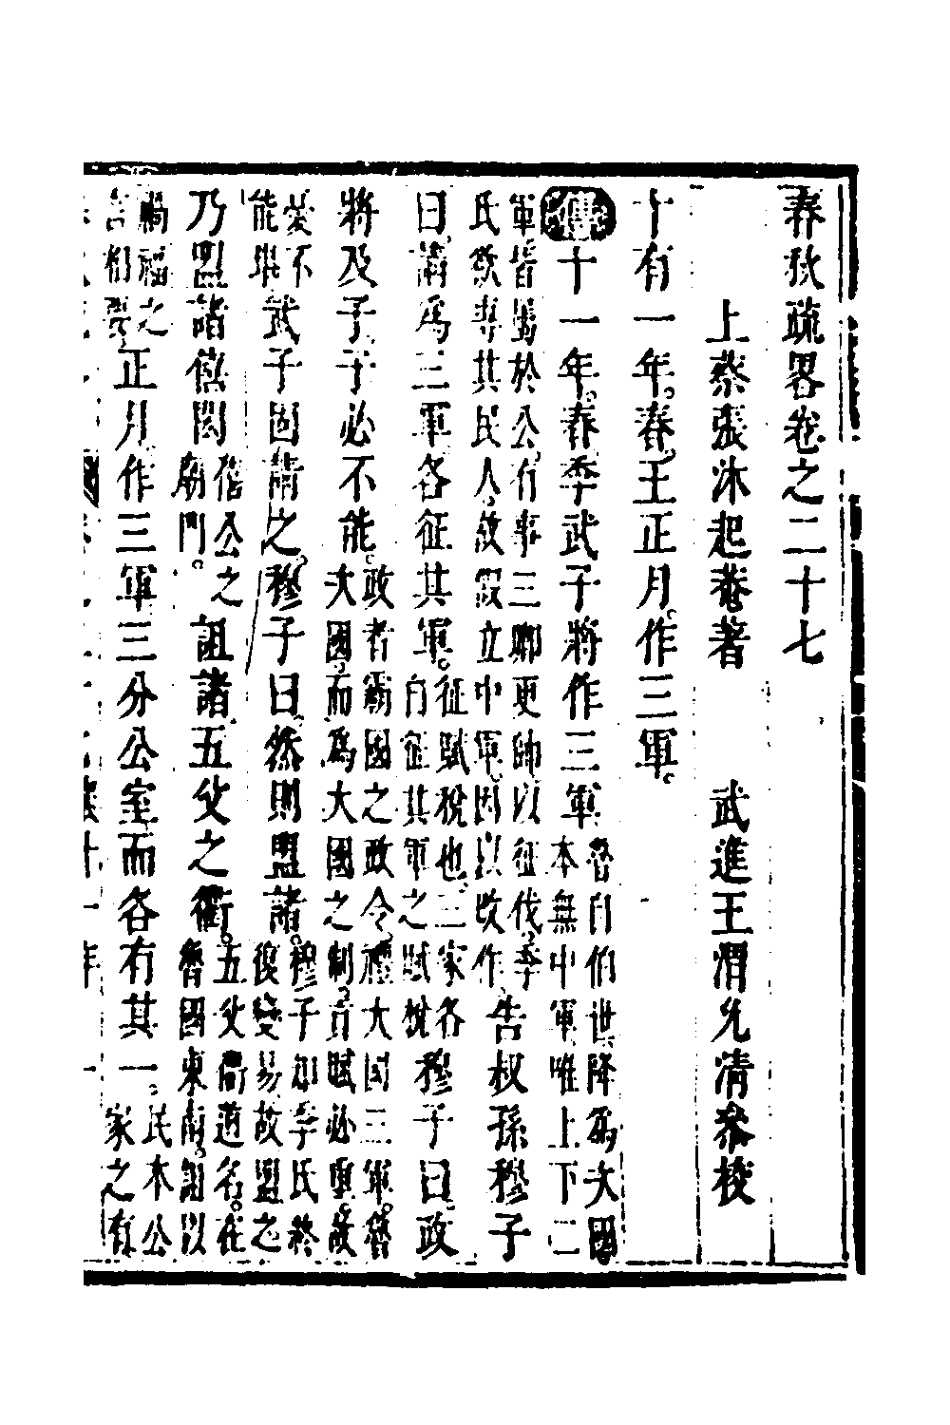 春秋疏畧卷之二十七
上蔡張沐起菴著　武進王渭允清叅校
十有一年春王正月作三軍
傳十一年春季武子將作三軍魯自伯世降為次國本無中軍唯上下二
軍皆屬於公有事三卿更帥以征伐季氏欲專其民人故假立中軍因以改作告叔孫穆子
曰請為三軍各征其軍征賦稅也三家各自征其軍之賦稅穆子曰政
將及子子必不能政者霸國之政令禮大国三軍魯次國而為大國之制貢賦必重故
憂不能堪武子固請之穆子曰然則盟諸穆子知季氏終復變易故盟之
乃盟諸僖閎僖公之廟門詛諸五父之衢五父衢道名在魯國東南詛以
禍福之言相要正月作三軍三分公室而各有其一民本公家之有